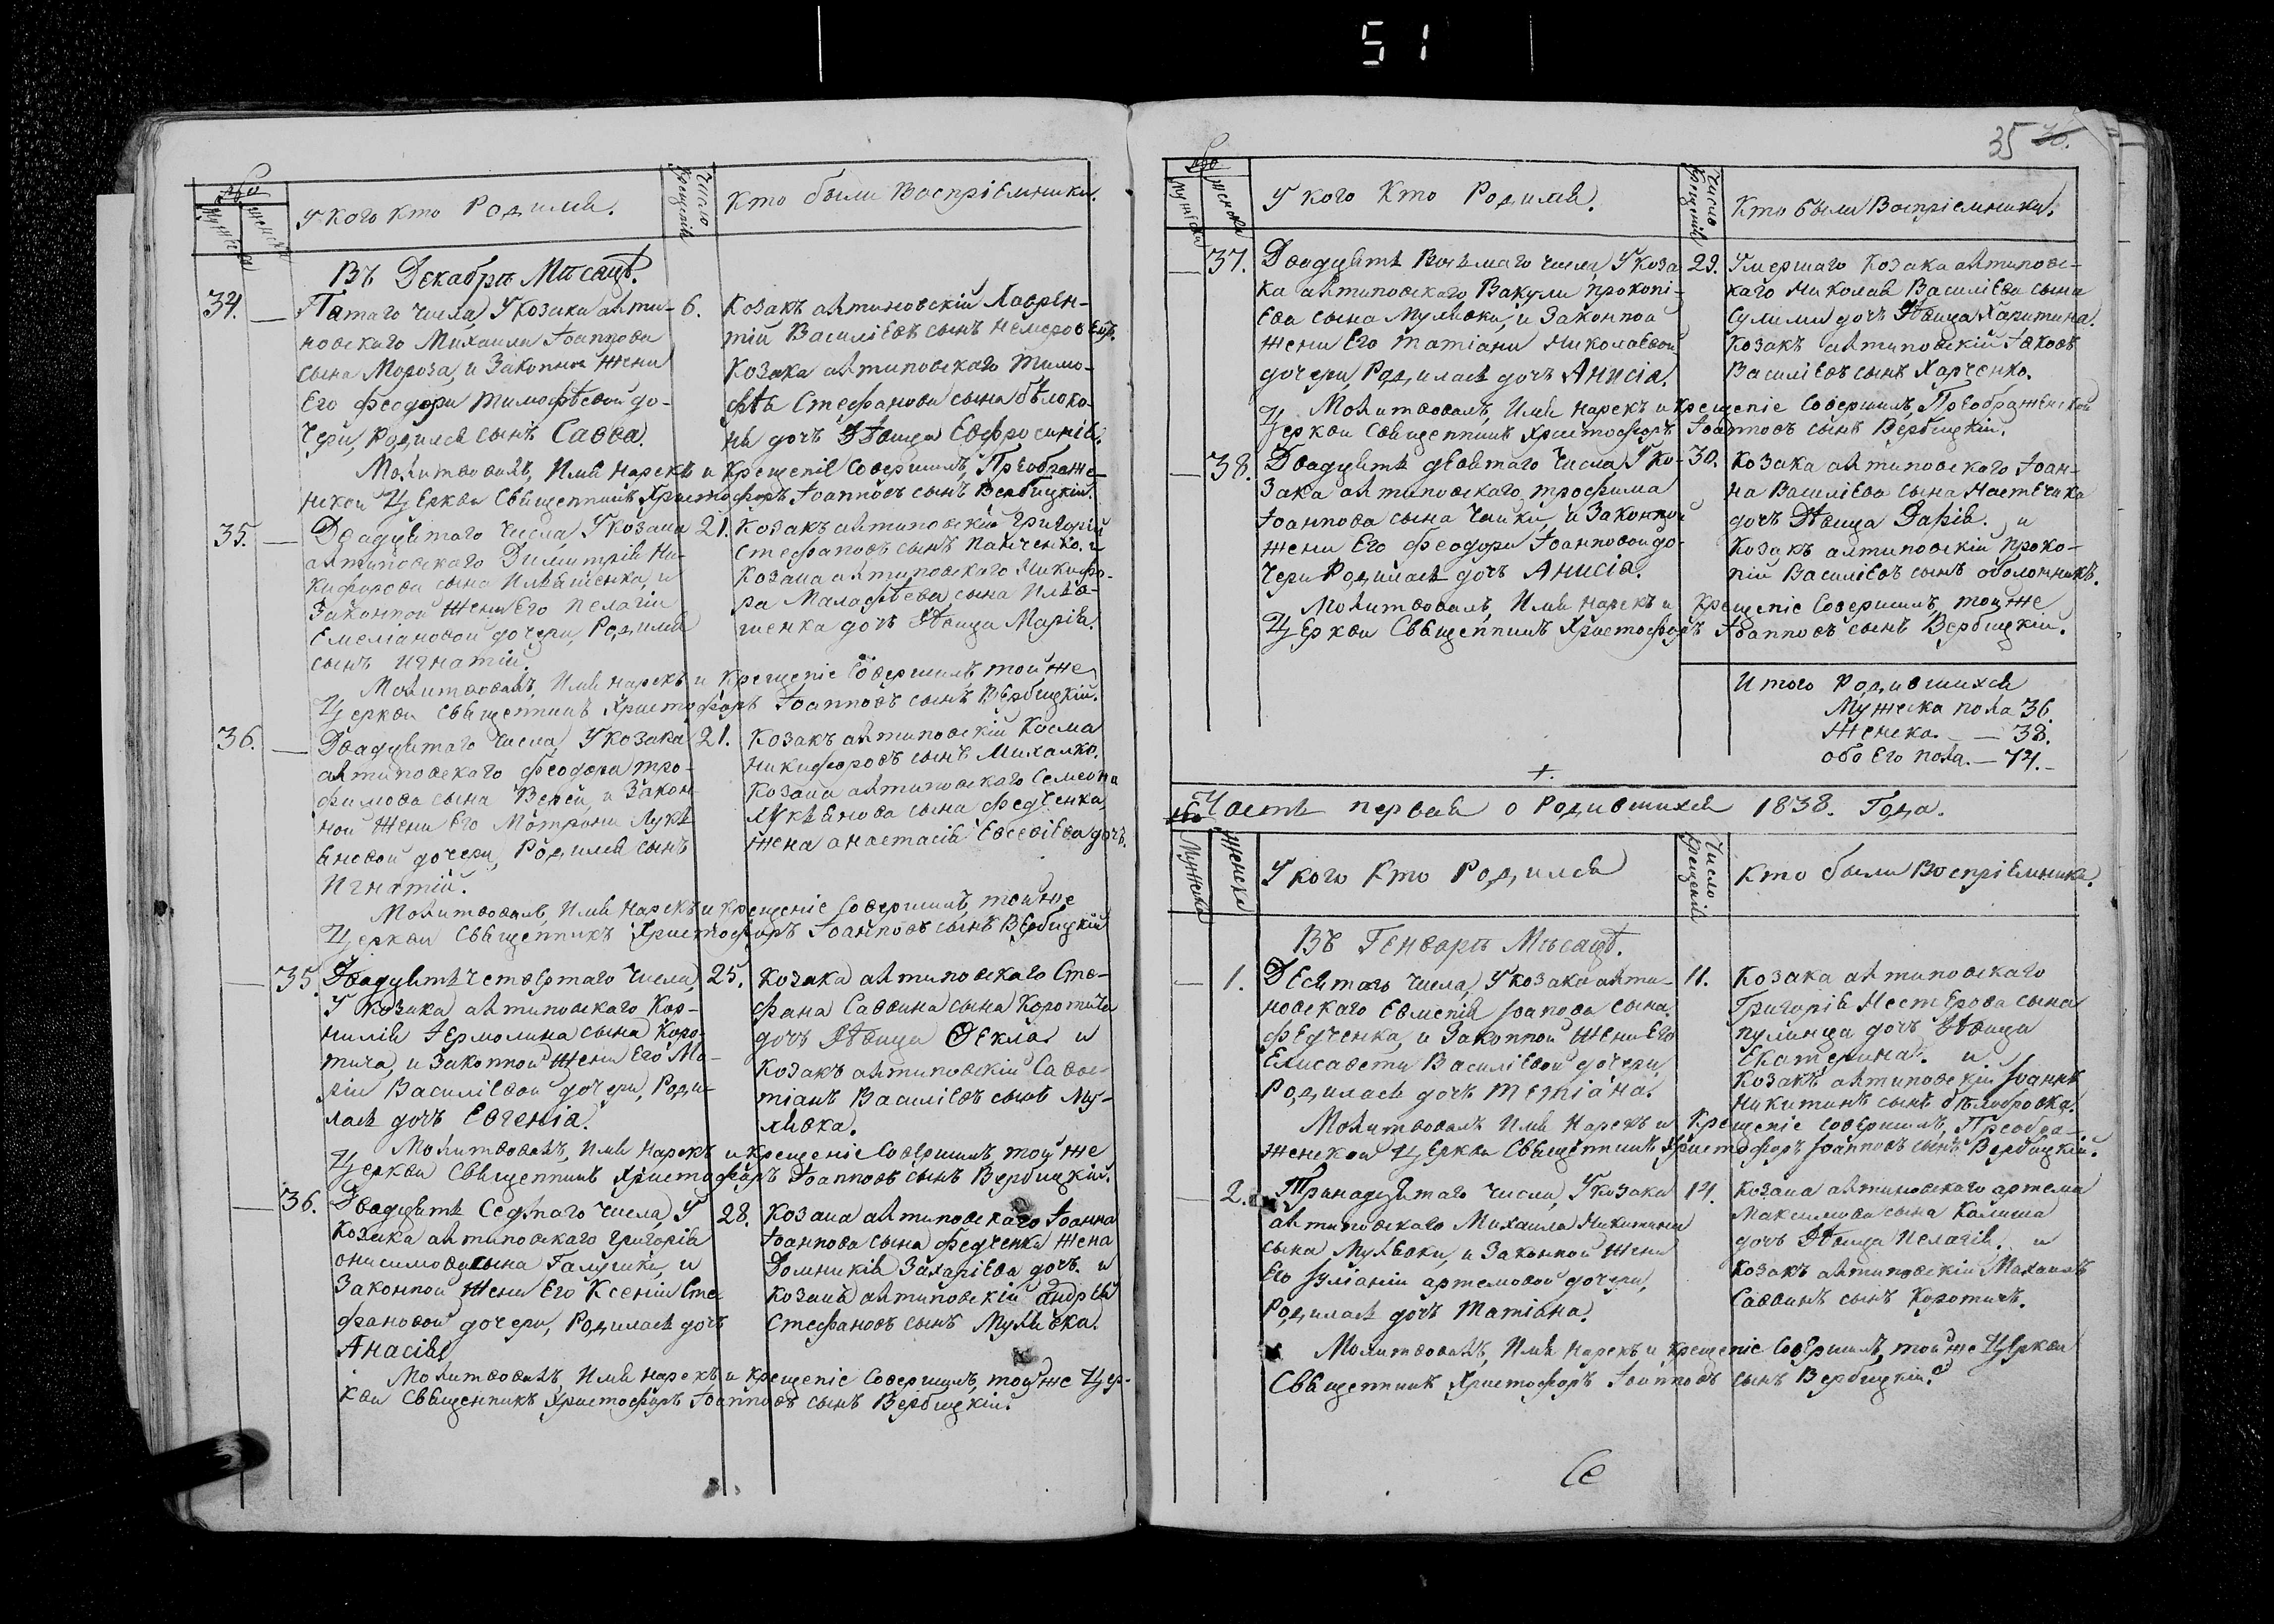 51
Число
крещенія
У кого кто Родился.
Кто были Воспріемники.
Въ Декабрѣ Мѣсяцѣ.
34.
Пятаго числа, У козака ахти-
новского Михаила Іоаннова
сына Мороза, и Законной жени
Его Феодори Тимофѣевой до-
чери, Родился сынъ Савва.
6.
Козакъ ахтиновскій Лаврен-
тій Василіевъ сынъ
Козака ахтиповского Тимо-
фѣя Стефанова сына бѣлоко-
ня дочъ дѣвица Евфросинія.
Молитвовалъ, Имя нарекъ и Крещеніе Совершилъ, Преображе-
нской Церкви Священникъ Христофоръ Іоанновъ сынъ Вербицкій.
35.
Двадцятаго числа, У козака
ахтиповского Димитрія Ни-
кифорова сына Иляшенка, и
Законной жени Его Пелагіи
Емеліановой дочери, Родился
сынъ Игнатій.
21.
Козакъ ахтиповскій Григорій
Стефановъ сынъ Панченко. и
Козака ахтиповского Никифо-
ра Малафѣева сына Иля-
шенка дочъ дѣвица Марія.
Молитвовалъ, Имя нарекъ и Крещеніе Совершилъ той же
Церкви Священникъ Христофоръ Іоанновъ сынъ Вербицкій.
36.
Двадцятаго числа, У козака
ахтиповского Феодора Тро-
фимова сына Венги, и Закон-
ной жени Его Мотрони Лукя
яновой дочери, Родился сынъ
Игнатій.
21.
Козакъ ахтиповскій Косма
Никифоровъ сынъ Михалко.
Козака ахтиповского Семеона
Лукянова сына Федченка
жена Анастасія Евсевіева дочъ.
Молитвовалъ, Имя нарекъ и крещеніе Совершилъ, той же
Церкви Священникъ Христофоръ Іоанновъ сынъ Вербицкій
35.
Двадцять четвертаго числа,
У Козака ахтиповского Кор-
нилія Іермолина сына Коро-
тича, и Законной жени Его Ма-
ріи Василіевой дочери, Роди-
лась дочъ Евгенія.
25.
Козака ахтиповского Сте-
фана Саввина сына Коротича
дочъ дѣвица Ѳекла и
Козакъ ахтиповскій Савас-
тіанъ Василіевъ сынъ Му-
лявка.
Молитвовалъ, Имя нарекъ и крещеніе Совершилъ, той же
Церкви Священникъ Христофоръ Іоанновъ сынъ Вербицкій.
36.
Двадцять Седмаго числа, У
Козака ахтиповского Григорія
онисимова сына Галушки, и
Законной жени Его Ксеніи Сте
фановой дочери, Родилась дочъ
Анасія
28.
Козака ахтиповского Іоанна
Іоаннова сына Федченка жена
Домникія Захаріева дочъ. и
Козакъ ахтиповскій андрѣй
Стефановъ сынъ Мулявка.
Молитвовалъ, Имя нарекъ и крещеніе Совершилъ, той же Цер-
кви Священникъ Христофоръ Іоанновъ сынъ Вербицкій.
35
Число
крещенія
У кого Кто Родился.
Кто были Воспріемники.
37.
Двадцять Восьмаго числа, У коза
ка ахтиповского Вакули прокопі-
ева сына Мулявки, и Законной
жени Его Татіани Николаевой
дочери, Родилась дочъ Анисія.
29.
Умершаго Козака ахтиповс-
каго Николая Василіева сына
Сулими дочъ дѣвица Харитина.
Козакъ ахтиповскій Іаковъ
Василіевъ сынъ Харченко.
Молитвовалъ, Имя нарекъ и крещеніе Совершилъ, Преображенской
Церкви Священникъ Христофоръ Іоанновъ сынъ Вербицкій.
38.
Двадцять девятаго числа, У Ко-
зака ахтиповского трофима
Іоаннова сына Чайки, и Законной
жени Его Феодори Іоанновой до-
чери Родилась дочъ Анисія.
30.
Козака ахтиповского Іоан-
на Василіева сына Настечика
дочъ дѣвица Дарія. и
Козакъ ахтиповскій Проко-
пій Василіевъ сынъ оболонникъ.
Молитвовалъ, Имя нарекъ и крещеніе Совершилъ, той же
Церкви Священникъ Христофоръ Іоанновъ сынъ Вербицкій.
Итого Родившихся
Мужеска пола 36.
Женска. — 38.
обоего пола. — 74.
Часть первая о Родившихся 1838. Года.
Мужеска
Женска
У кого Кто Родился
Число
крещенія
Кто были Воспріемники.
Въ Генварѣ Мѣсяцѣ.
1.
Десятаго числа, У козака ахти-
повского Евменія Іоанова сына
Федченка, и Законной жени Его
Елисавети Василіевой дочери,
Родилась дочъ Тетіана.
11.
Козака ахтиповского
Григорія Нестерова сына
пулинца дочъ дѣвица
Екатерина. и
Козакъ ахтиповскій Іоаннъ
Никитинъ сынъ бѣлобровка.
Молитвовалъ Имя Нарекъ и Крещеніе Совершилъ, Преобра-
женской Церкви Священникъ Христофоръ Іоанновъ сынъ Вербицкій.
2.
Тринадцятаго числа, У козака
ахтиповского Михаила Никитина
сына Мулявки, и Законной жени
Его Іуліаніи артемовой дочери,
Родилась дочъ Татіана.
14.
Козака ахтиповского артема
Максимова сына Калиша
дочъ дѣвица Пелагія. и
Козакъ ахтиповскій Михаилъ
Саввинъ сынъ Коротичъ.
Молитвовалъ, Имя Нарекъ и крещеніе Совершилъ, той же Церкви
Священникъ Христофоръ Іоанновъ сынъ Вербицкій.